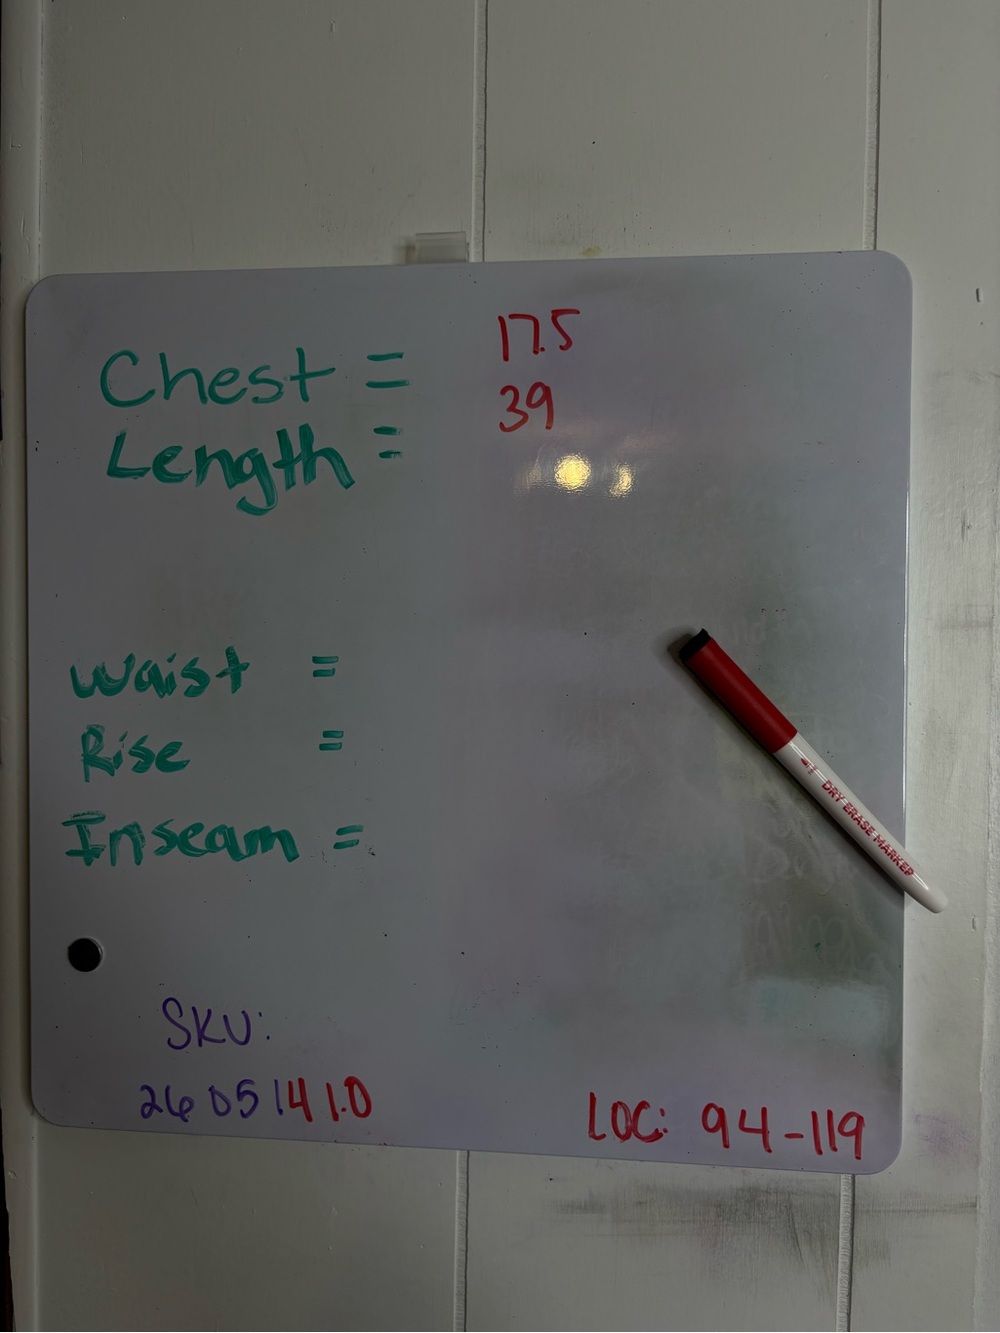 Chest = 17.5
Length = 39
Waist =
Rise =
Inseam =
SKU:
2605141.0
LOC: 94-119
DRY ERASE MARKER